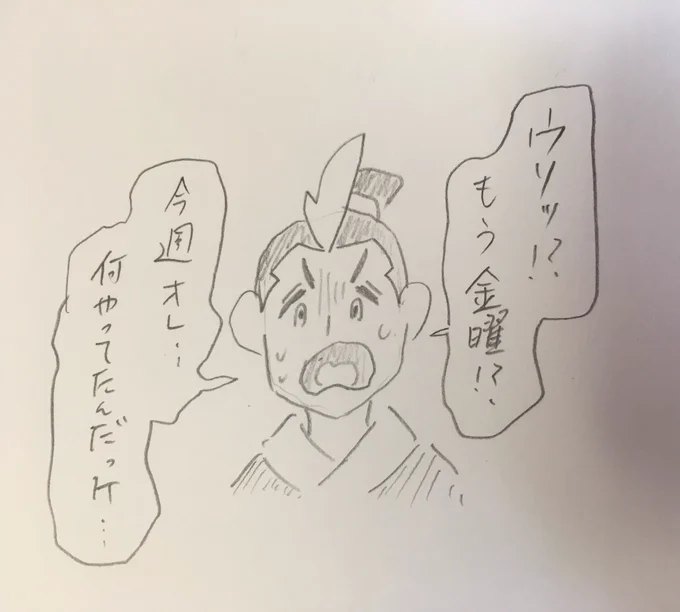 ウソッ!?
もう金曜!?
今週オレ…
何やってたんだっけ…